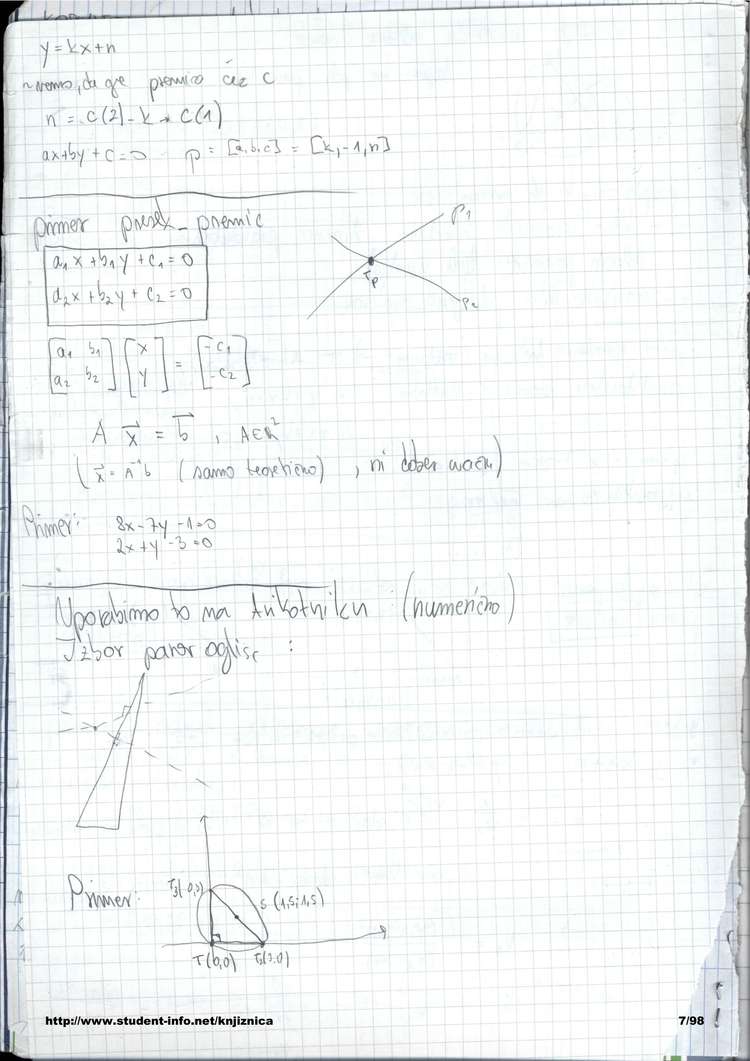 y = kx + n
vemo, da gre premica čez C
n = C(2) - k * C(1)
ax + by + c = 0 p = [a, b, c] = [k, -1, n]
primer presek_premic
a₁x + b₁y + c₁ = 0
a₂x + b₂y + c₂ = 0
p₁
T_p
p₂
[a₁ b₁; a₂ b₂] [x; y] = [-c₁; -c₂]
A x⃗ = b⃗ , A∈ℝ²
(x⃗ = A⁻¹b (samo teoretično) , ni dober način)
Primer: 8x - 7y - 1 = 0
2x + y - 3 = 0
Uporabimo to na trikotniku (numerično)
Izbor parov oglišč :
Primer:
T₃(0,3)
S (1,5; 1,5)
T(0,0) T₂(3,0)
http://www.student-info.net/knjiznica 7/98